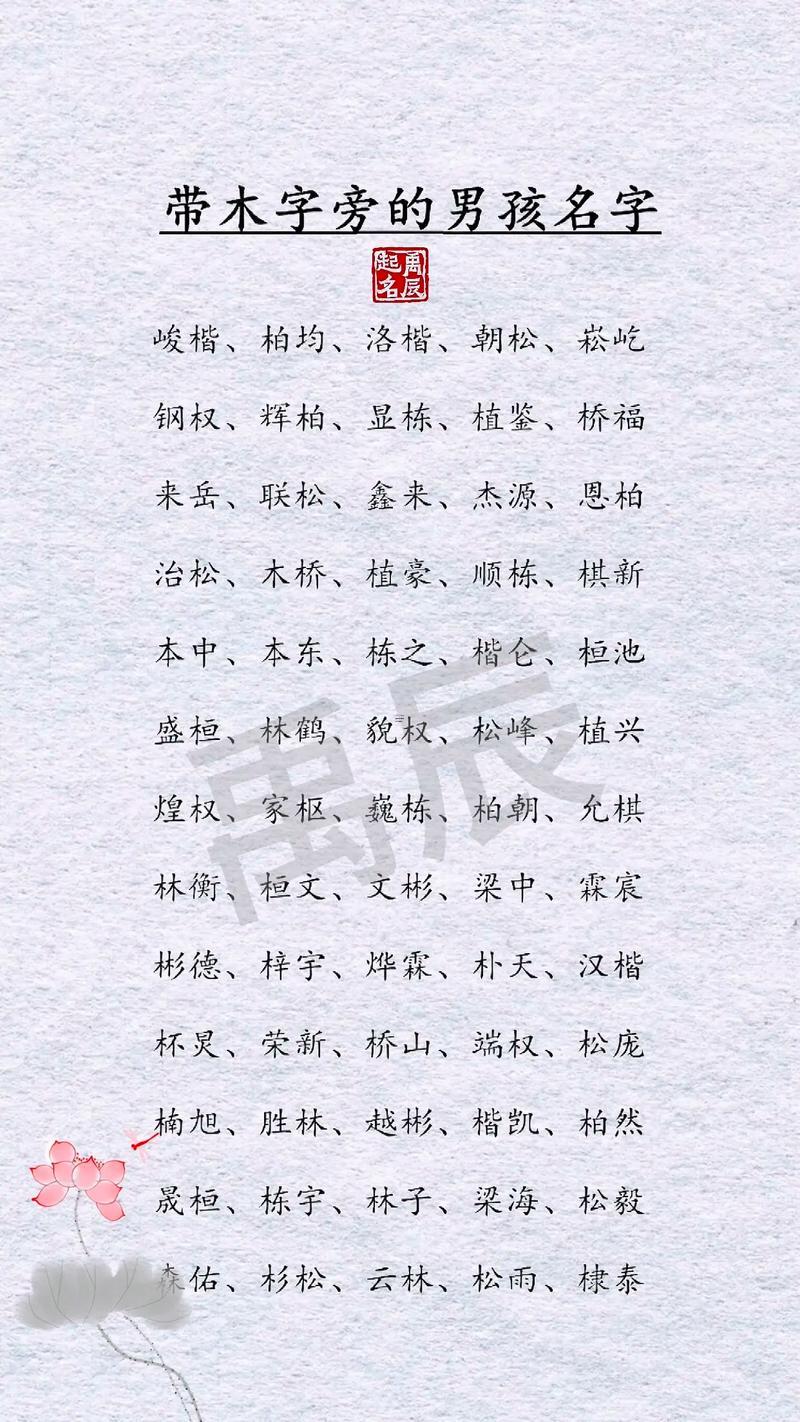 带木字旁的男孩名字
禹辰起名
峻楷、柏均、洛楷、朝松、崧屹
钢权、辉柏、显栋、植鉴、桥福
来岳、联松、鑫来、杰源、恩柏
治松、木桥、植豪、顺栋、棋新
本中、本东、栋之、楷仑、桓池
盛桓、林鹤、貌权、松峰、植兴
煌权、家枢、巍栋、柏朝、允棋
林衡、桓文、文彬、梁中、霖宸
彬德、梓宇、烨霖、朴天、汉楷
杯炅、荣新、桥山、端权、松庞
楠旭、胜林、越彬、楷凯、柏然
晟桓、栋宇、林子、梁海、松毅
森佑、杉松、云林、松雨、棣泰
禹辰